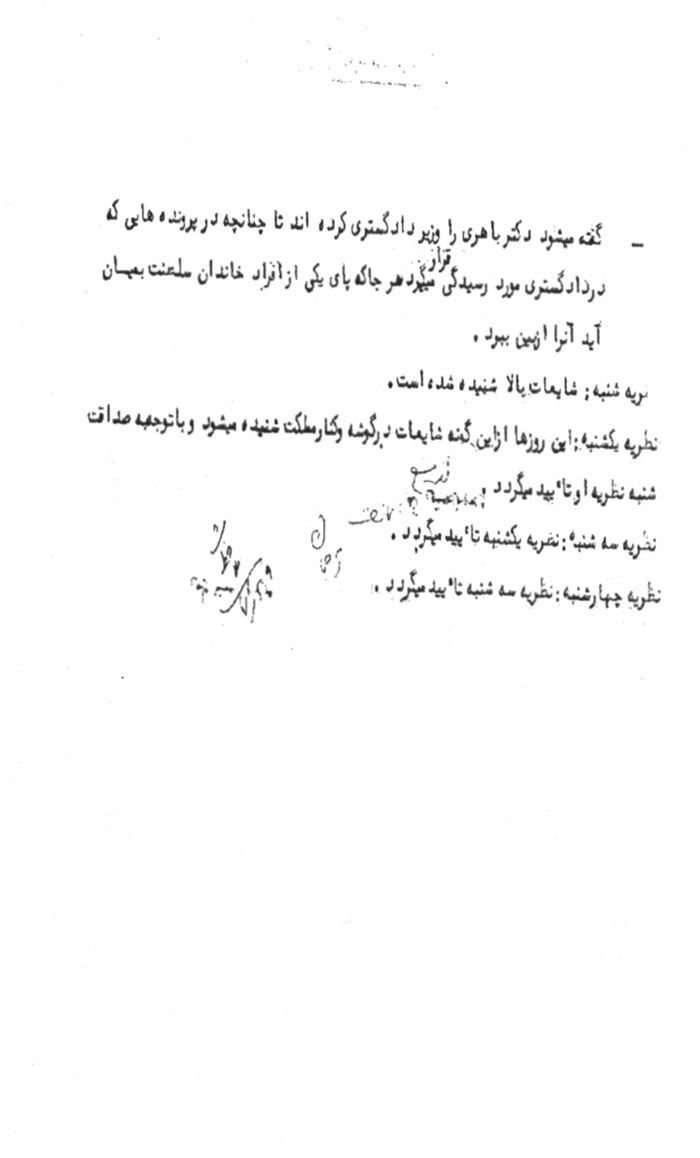 ـ گفته میشود دکتر باهری را وزیر دادگستری کرده اند تا چنانچه در پرونده هایی که
در دادگستری مورد رسیدگی قرار میگیرد هر جا که پای یکی از افراد خاندان سلطنت بمیان
آید آنرا ازبین ببرد .
نریه شنبه : شایعات بالا شنیده شده است .
نظریه یکشنبه : این روزها ازاین گونه شایعات درگوشه وکنار مملکت شنیده میشود و باتوجه به صداقت
شنبه نظریه او تأیید میگردد .
نظریه سه شنبه : نظریه یکشنبه تأیید میگردد .
نظریه چهارشنبه : نظریه سه شنبه تأیید میگردد .